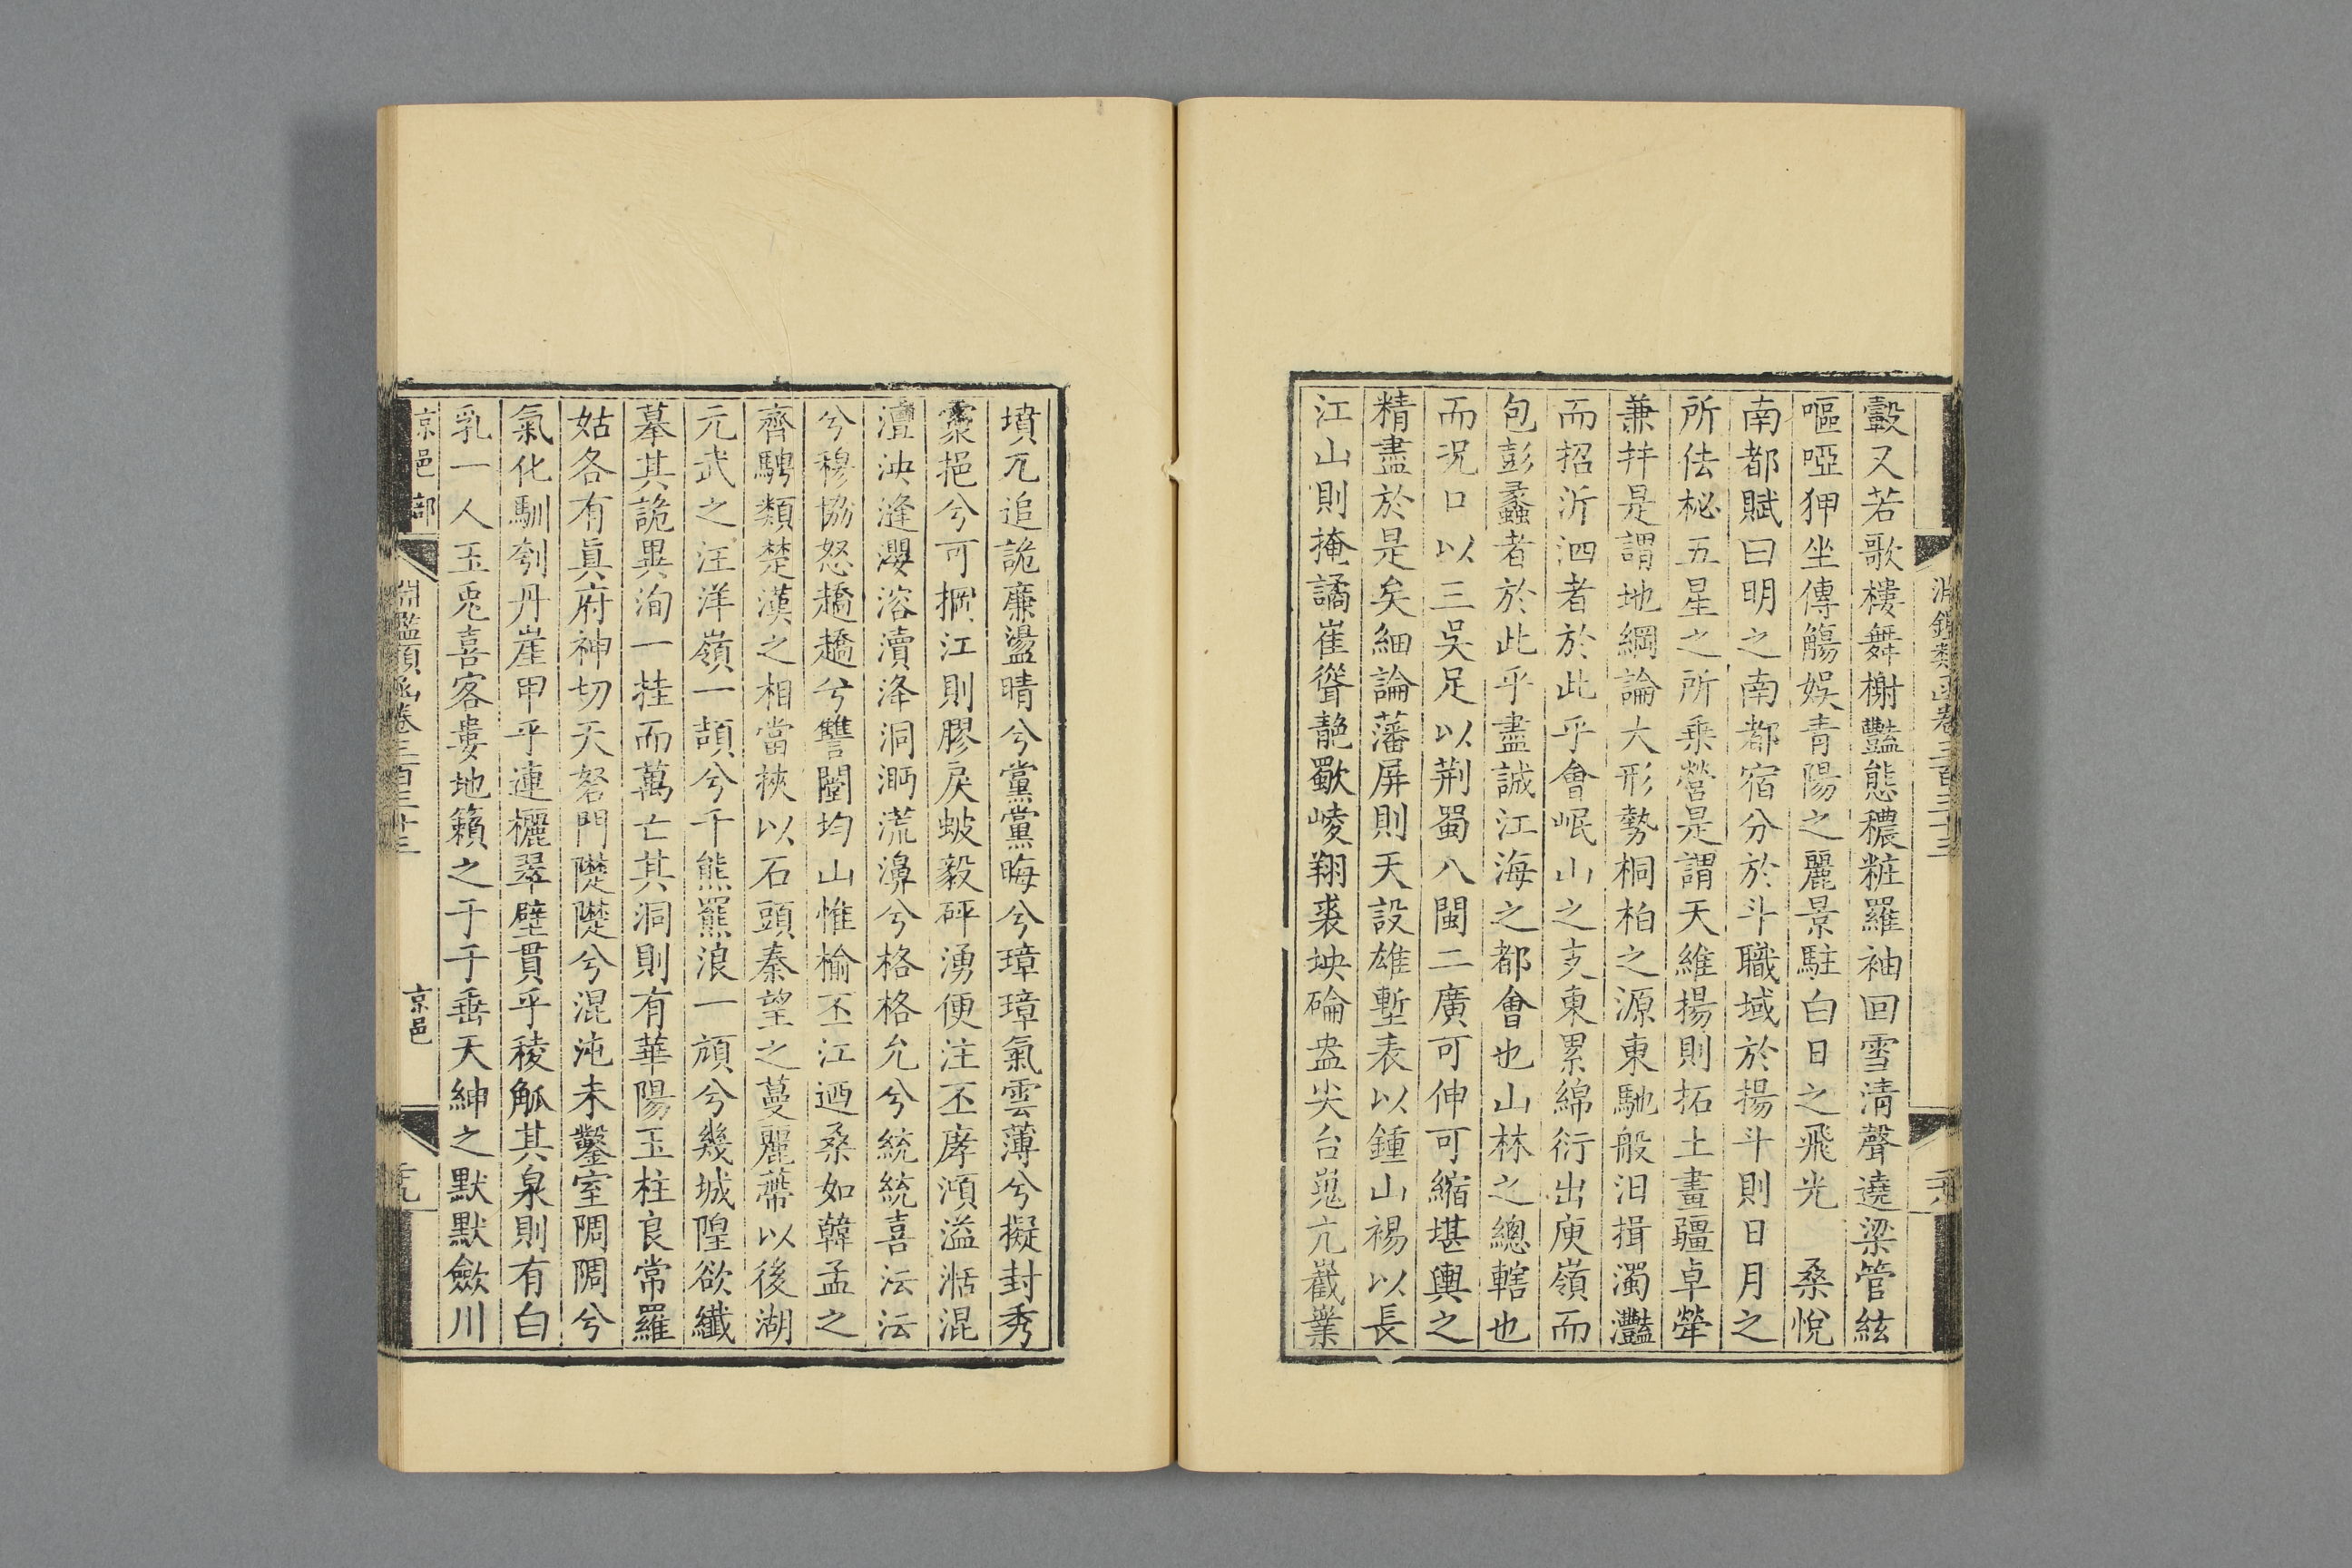 轂又若歌樓舞榭豔態穠粧羅袖回雪清聲遶梁管絃
嘔啞狎坐傳觴娛青陽之麗景駐白日之飛光　桑悅
南都賦曰明之南都宿分於斗職域於揚斗則日月之
所佉柲五星之所乗營是謂天維揚則拓土畫疆卓犖
兼幷是謂地綱論大形勢桐柏之源東馳般汨揖濁灩
而招沂泗者於此乎會岷山之支東累綿衍出庾嶺而
包彭蠡者於此乎盡誠江海之都會也山林之總轄也
而況口以三吳足以荆蜀八閩二廣可伸可縮堪輿之
精盡於是矣細論藩屏則天設雄塹表以鍾山裼以長
江山則掩譎崔聳靘歜崚翔裘坱碖盎尖台嵬亢嶻嶪
墳兀追詭㢘盪晴兮黨黨晦兮璋璋氣雲薄兮擬封秀
靈挹兮可掬江則膠戾蛂毅砰湧便注丕庨澒溢湉混
澶泱漨瀴溶瀆洚洞沔㵃濞兮格格允兮統統喜沄沄
兮穆協怒趫趫兮讐鬭均山惟榆丕江迺桑如韓孟之
齊騁類楚漢之相當挾以石頭秦望之蔓麗帶以後湖
元武之汪洋嶺一頡兮千熊羆浪一頏兮幾城隍欲纖
摹其詭異洵一挂而萬亡其洞則有華陽玉柱良常羅
姑各有眞府神切天砮門隵隵兮混沌未鑿室㓮㓮兮
氣化馴刳丹崖甲乎連欐翠壁貫乎稜觚其泉則有白
乳一人玉兎喜客婁地籟之于于垂天紳之默默歛川
京邑部
淵鑑類函卷三百三十三
京邑